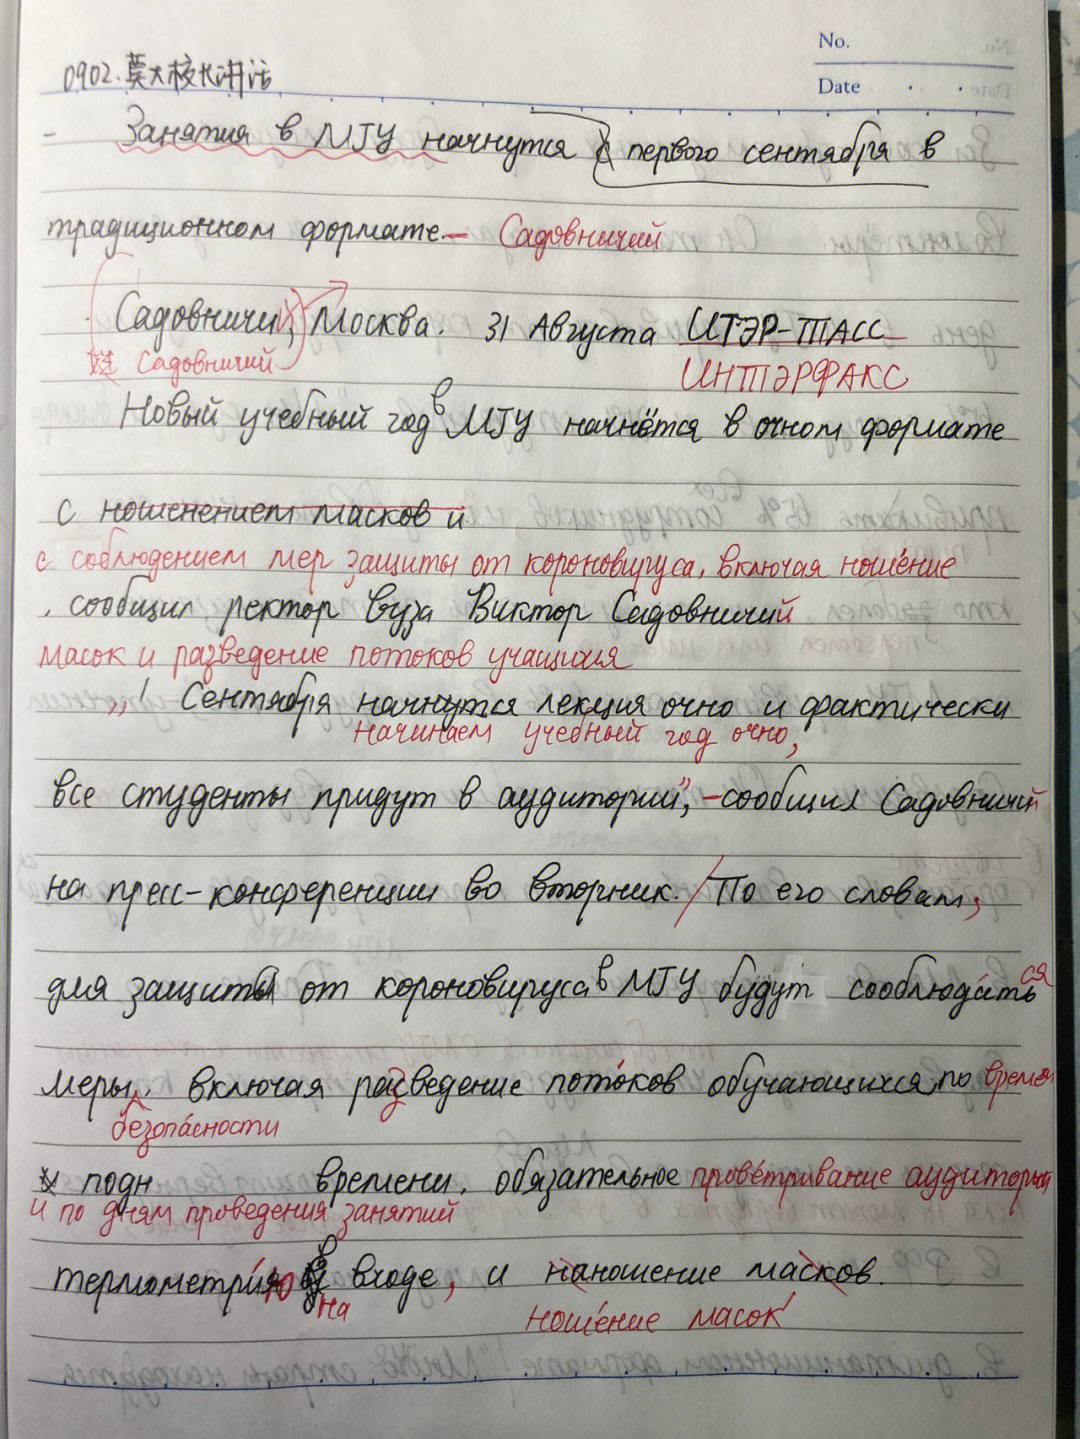 No.
Date
0902.莫大校长讲话
- Занятия в МГУ начнутся с первого сентября в
традиционном формате.— Садовничий
Садовничи, Москва. 31 Августа ИТЭР-ТАСС
Садовничий ИНТЭРФАКС
Новый учебный год в МГУ начнётся в очном формате
с ношенением масков и
с соблюдением мер защиты от короновируса, включая ношение
, сообщил ректор вуза Виктор Садовничий
масок и разведение потоков учащихия
„1 Сентября начнутся лекция очно и фактически
начинаем учебный год очно,
все студенты придут в аудитории", -сообщил Садовничий
на пресс-конференции во вторник. / По его словам,
для защиты от короновируса в МГУ будут сооблюдаться
меры, включая разведение потоков обучающихся, по времен
безопасности
подн времени, обязательное проветривание аудиторий
и по дням проведения занятий
термометрию в входе, и наношение масков.
на ношение масок